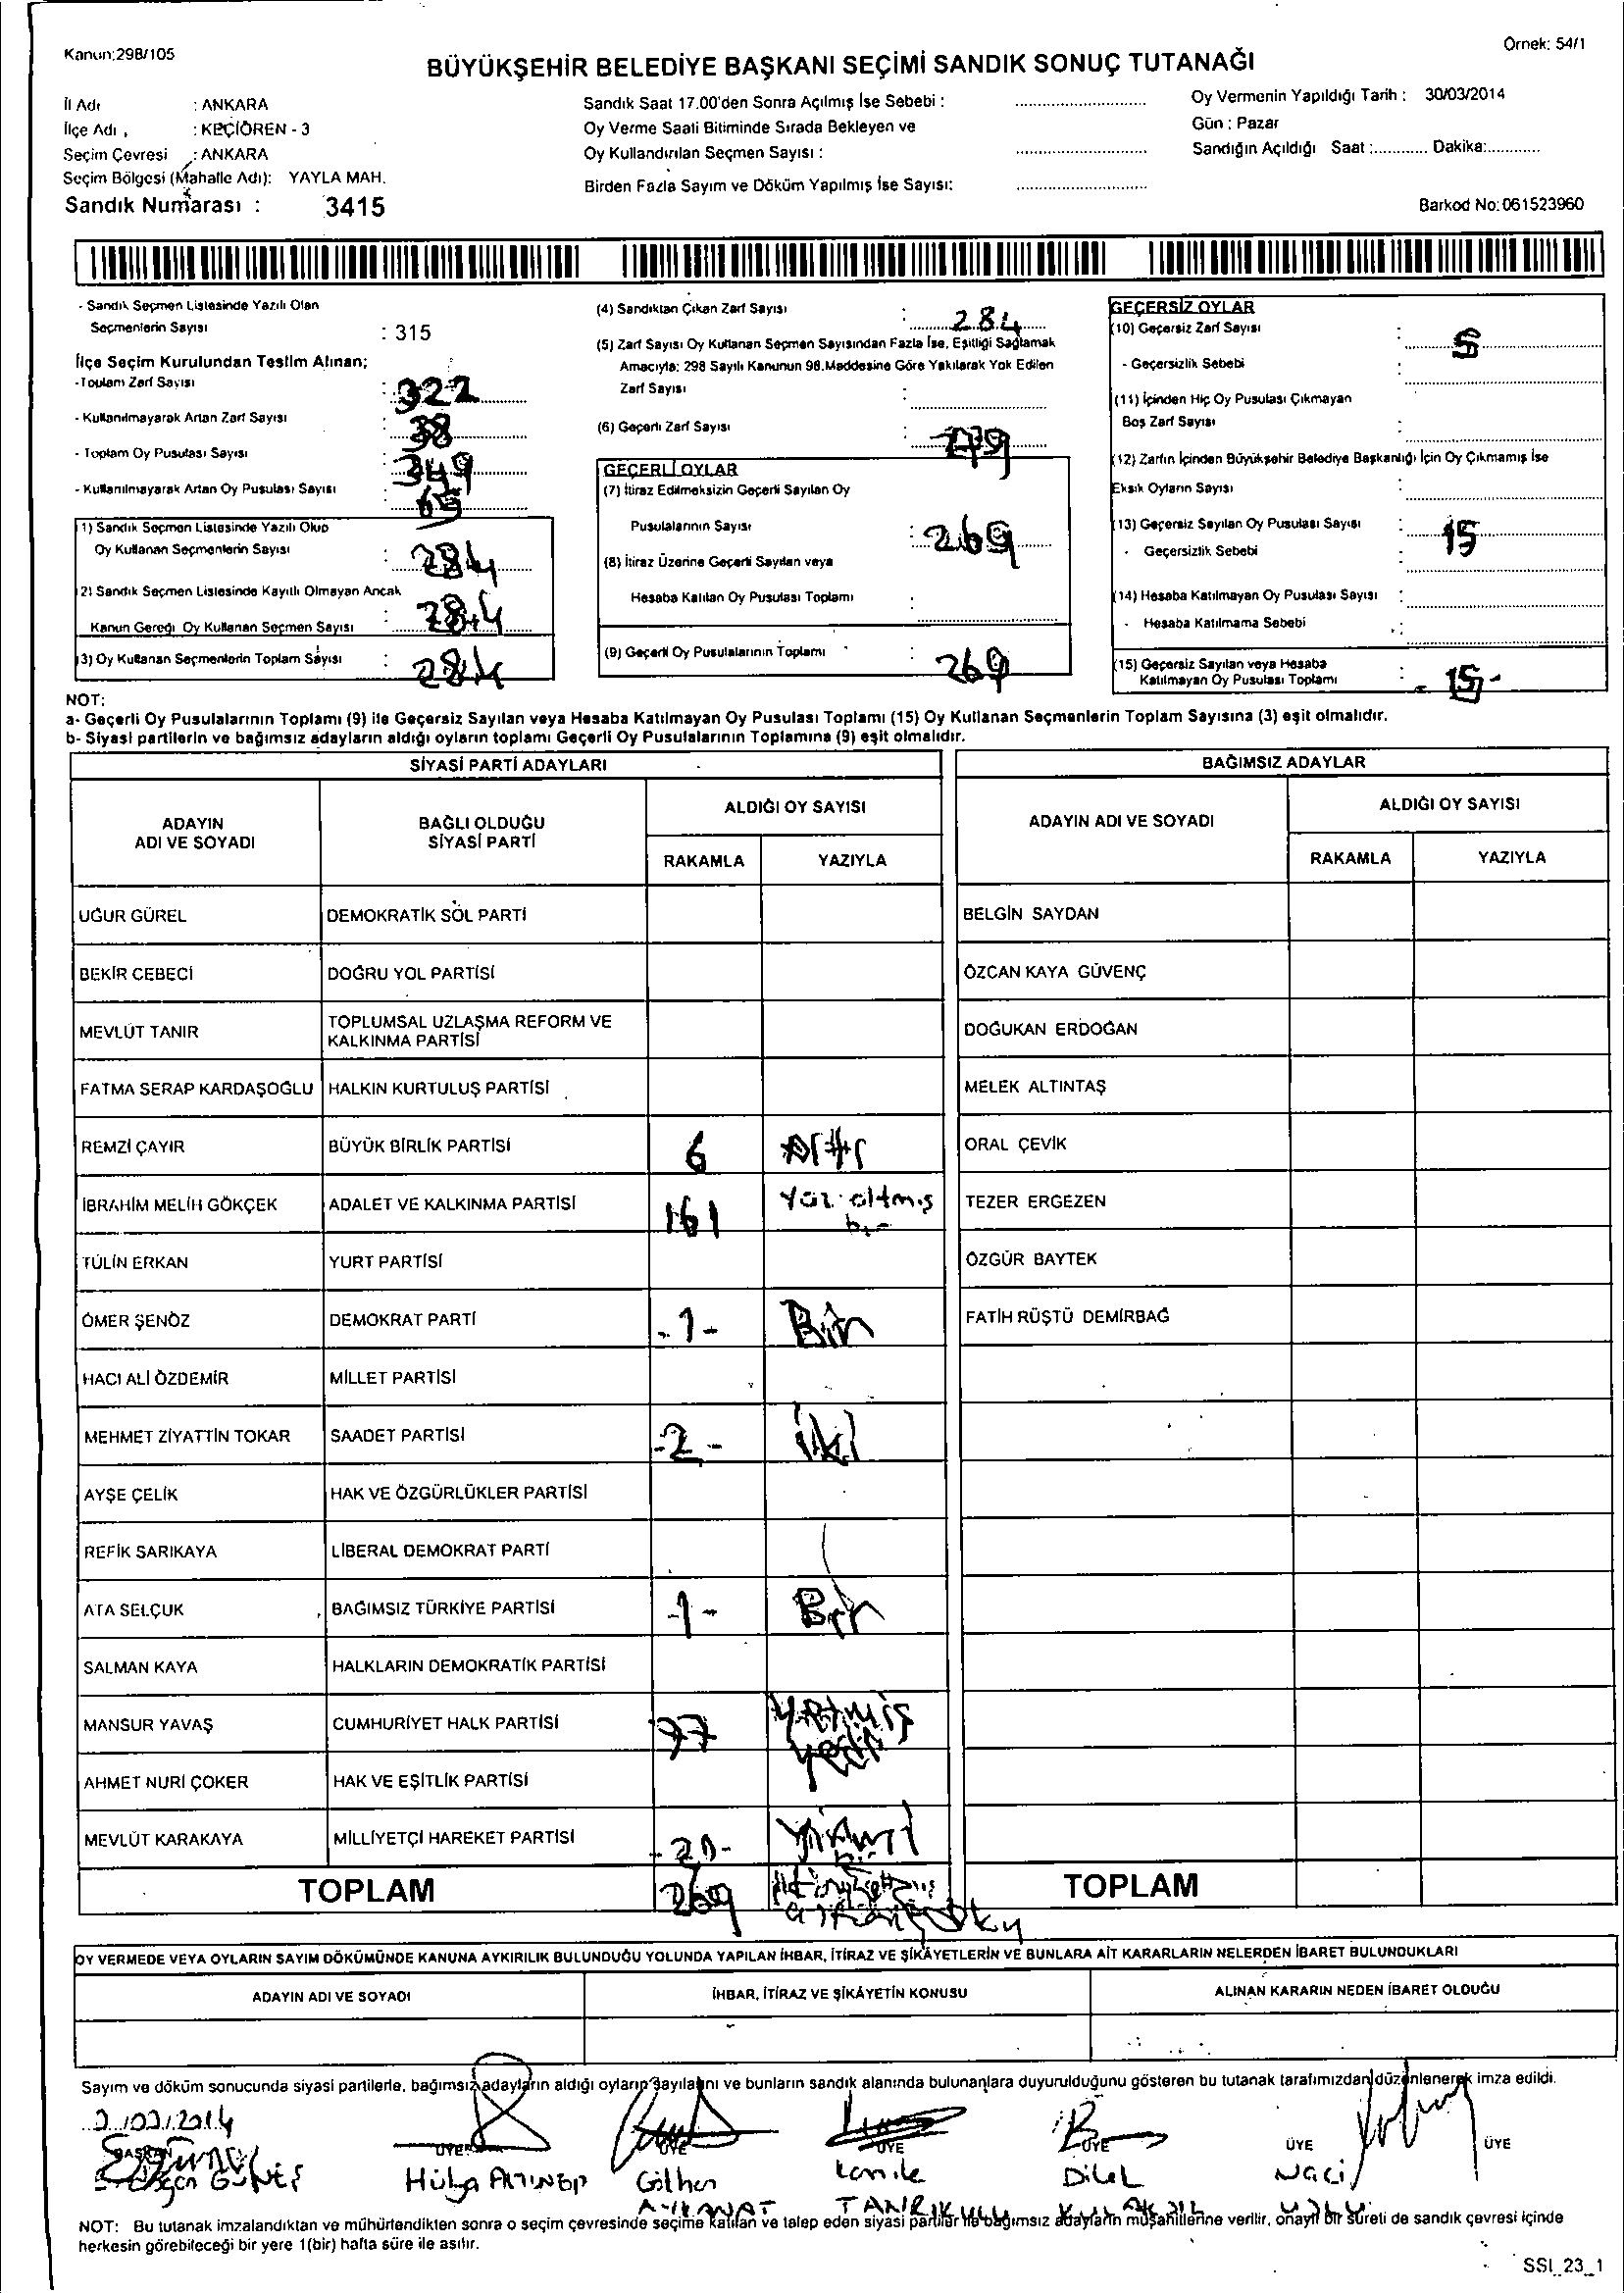 Kanun:298/105
Örnek: 54/1
BÜYÜKŞEHİR BELEDİYE BAŞKANI SEÇİMİ SANDIK SONUÇ TUTANAĞI
İl Adı : ANKARA
İlçe Adı : KEÇİÖREN - 3
Seçim Çevresi : ANKARA
Seçim Bölgesi (Mahalle Adı): YAYLA MAH.
Sandık Numarası : 3415
Sandık Saat 17.00'den Sonra Açılmış İse Sebebi :
Oy Verme Saati Bitiminde Sırada Bekleyen ve
Oy Kullandırılan Seçmen Sayısı :
Birden Fazla Sayım ve Döküm Yapılmış İse Sayısı:
Oy Vermenin Yapıldığı Tarih : 30/03/2014
Gün : Pazar
Sandığın Açıldığı Saat :............ Dakika:............
Barkod No: 061523960
- Sandık Seçmen Listesinde Yazılı Olan
Seçmenlerin Sayısı : 315
İlçe Seçim Kurulundan Teslim Alınan;
- Toplam Zarf Sayısı : 322
- Kullanılmayarak Artan Zarf Sayısı : 38
- Toplam Oy Pusulası Sayısı : 349
- Kullanılmayarak Artan Oy Pusulası Sayısı : 65
1) Sandık Seçmen Listesinde Yazılı Olup
Oy Kullanan Seçmenlerin Sayısı : 284
2) Sandık Seçmen Listesinde Kayıtlı Olmayan Ancak
Kanun Gereği Oy Kullanan Seçmen Sayısı : 284
3) Oy Kullanan Seçmenlerin Toplam Sayısı : 284
(4) Sandıktan Çıkan Zarf Sayısı : 284
(5) Zarf Sayısı Oy Kullanan Seçmen Sayısından Fazla İse, Eşitliği Sağlamak
Amacıyla: 298 Sayılı Kanunun 98.Maddesine Göre Yakılarak Yok Edilen
Zarf Sayısı :
(6) Geçerli Zarf Sayısı : 279
GEÇERLİ OYLAR
(7) İtiraz Edilmeksizin Geçerli Sayılan Oy
Pusulalarının Sayısı : 269
(8) İtiraz Üzerine Geçerli Sayılan veya
Hesaba Katılan Oy Pusulası Toplamı :
(9) Geçerli Oy Pusulalarının Toplamı : 269
GEÇERSİZ OYLAR
(10) Geçersiz Zarf Sayısı : 5
- Geçersizlik Sebebi
(11) İçinden Hiç Oy Pusulası Çıkmayan
Boş Zarf Sayısı :
(12) Zarfın İçinden Büyükşehir Belediye Başkanlığı İçin Oy Çıkmamış İse
Eksik Oyların Sayısı :
(13) Geçersiz Sayılan Oy Pusulası Sayısı : 15
- Geçersizlik Sebebi :
(14) Hesaba Katılmayan Oy Pusulası Sayısı :
- Hesaba Katılmama Sebebi :
(15) Geçersiz Sayılan veya Hesaba
Katılmayan Oy Pusulası Toplamı : - 15 -
NOT:
a- Geçerli Oy Pusulalarının Toplamı (9) ile Geçersiz Sayılan veya Hesaba Katılmayan Oy Pusulası Toplamı (15) Oy Kullanan Seçmenlerin Toplam Sayısına (3) eşit olmalıdır.
b- Siyasi partilerin ve bağımsız adayların aldığı oyların toplamı Geçerli Oy Pusulalarının Toplamına (9) eşit olmalıdır.
SİYASİ PARTİ ADAYLARI
BAĞIMSIZ ADAYLAR
ADAYIN ADI VE SOYADI
BAĞLI OLDUĞU SİYASİ PARTİ
ALDIĞI OY SAYISI
RAKAMLA YAZIYLA
ADAYIN ADI VE SOYADI
ALDIĞI OY SAYISI
RAKAMLA YAZIYLA
UĞUR GÜREL DEMOKRATİK SOL PARTİ BELGİN SAYDAN
BEKİR CEBECİ DOĞRU YOL PARTİSİ ÖZCAN KAYA GÜVENÇ
MEVLÜT TANIR TOPLUMSAL UZLAŞMA REFORM VE KALKINMA PARTİSİ DOĞUKAN ERDOĞAN
FATMA SERAP KARDAŞOĞLU HALKIN KURTULUŞ PARTİSİ MELEK ALTINTAŞ
REMZİ ÇAYIR BÜYÜK BİRLİK PARTİSİ 6 ORAL ÇEVİK
İBRAHİM MELİH GÖKÇEK ADALET VE KALKINMA PARTİSİ 161 Yüz altmış bir TEZER ERGEZEN
TÜLİN ERKAN YURT PARTİSİ ÖZGÜR BAYTEK
ÖMER ŞENÖZ DEMOKRAT PARTİ - 1 - Bir FATİH RÜŞTÜ DEMİRBAĞ
HACI ALİ ÖZDEMİR MİLLET PARTİSİ
MEHMET ZİYATTİN TOKAR SAADET PARTİSİ - 2 - iki
AYŞE ÇELİK HAK VE ÖZGÜRLÜKLER PARTİSİ
REFİK SARIKAYA LİBERAL DEMOKRAT PARTİ
ATA SELÇUK BAĞIMSIZ TÜRKİYE PARTİSİ - 1 - Bir
SALMAN KAYA HALKLARIN DEMOKRATİK PARTİSİ
MANSUR YAVAŞ CUMHURİYET HALK PARTİSİ 77 Yetmiş Yedi
AHMET NURİ ÇOKER HAK VE EŞİTLİK PARTİSİ
MEVLÜT KARAKAYA MİLLİYETÇİ HAREKET PARTİSİ - 21 - Yirmi bir
TOPLAM 269 TOPLAM
OY VERMEDE VEYA OYLARIN SAYIM DÖKÜMÜNDE KANUNA AYKIRILIK BULUNDUĞU YOLUNDA YAPILAN İHBAR, İTİRAZ VE ŞİKÂYETLERİN VE BUNLARA AİT KARARLARIN NELERDEN İBARET BULUNDUKLARI
ADAYIN ADI VE SOYADI İHBAR, İTİRAZ VE ŞİKÂYETİN KONUSU ALINAN KARARIN NEDEN İBARET OLDUĞU
Sayım ve döküm sonucunda siyasi partilerle, bağımsız adayların aldığı oyların sayılarını ve bunların sandık alanında bulunanlara duyurulduğunu gösteren bu tutanak tarafımızdan düzenlenerek imza edildi.
BAŞKAN ÜYE ÜYE ÜYE ÜYE ÜYE ÜYE
Hülya Gölhan Kamile Dilek Naci
TANRIKULU
NOT: Bu tutanak imzalandıktan ve mühürlendikten sonra o seçim çevresinde seçime katılan ve talep eden siyasi partiler ile bağımsız adayların müşahitlerine verilir, onaylı bir sureti de sandık çevresi içinde
herkesin görebileceği bir yere 1(bir) hafta süre ile asılır.
SSI_23_1